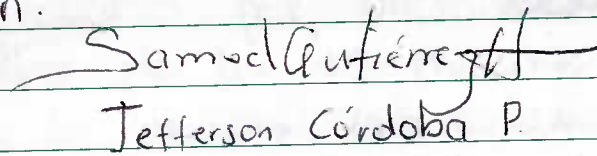 n.
Samuel Gutiérrez
Jefferson Córdoba P.